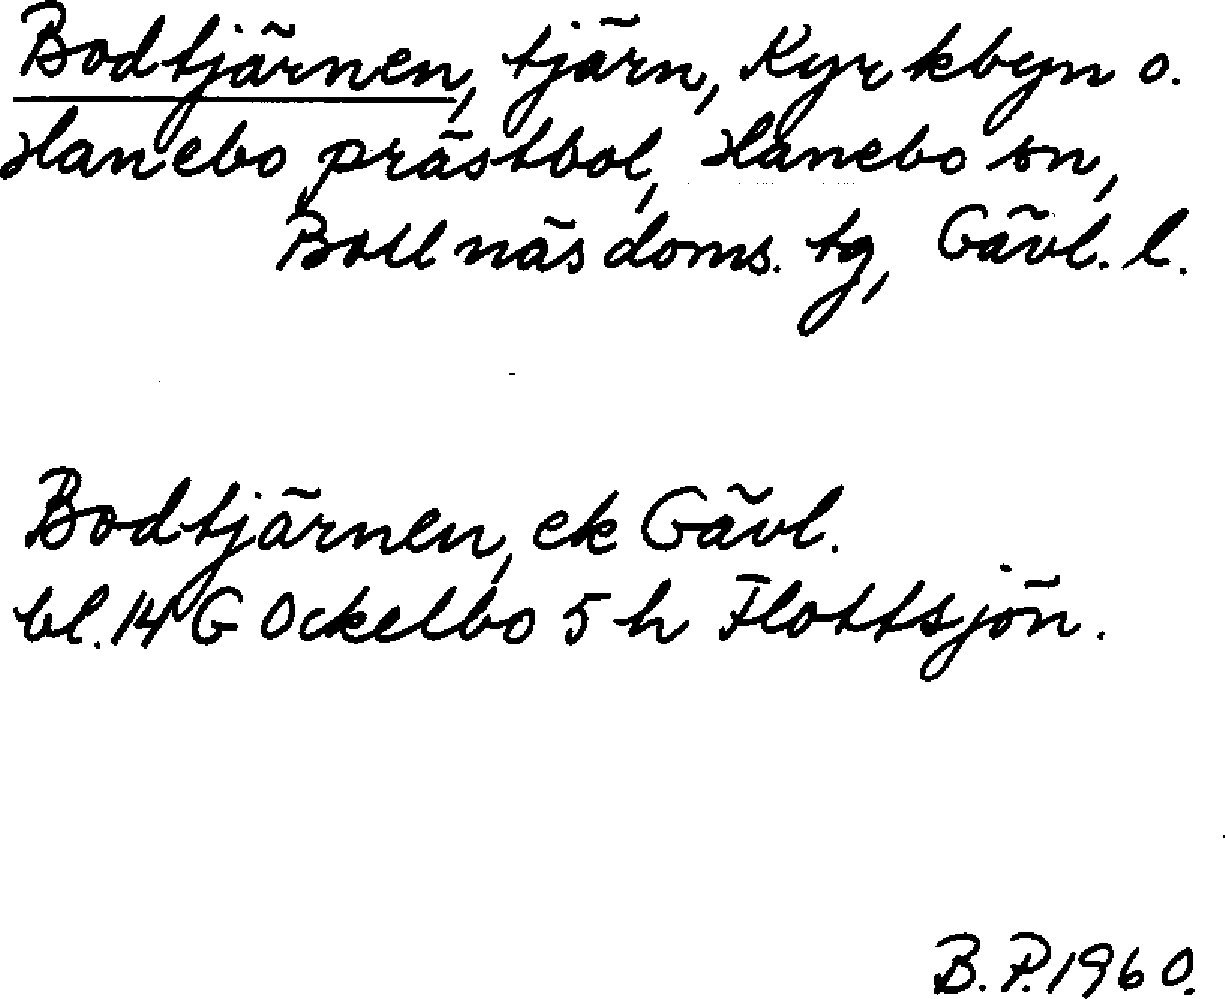 Bodtjärnen, tjärn, Kyrkbyn o.
Hanebo prästbol, Hanebo sn,
Bollnäs doms. tg, Gävl. l.
Bodtjärnen, ek Gävl.
bl. 14 G Ockelbo 5 h Flottsjön.
B. P. 1960.